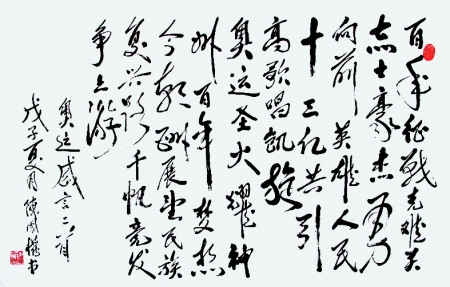 百年征战克难关
志士豪杰勇
向前英雄人民
十三亿共引
高歌唱凯旋
奥运圣火耀神
州百年梦想
今朝酬展望民族
复兴路千帆竞发
争上游
奥运感言二首
戊子夏月陈国书